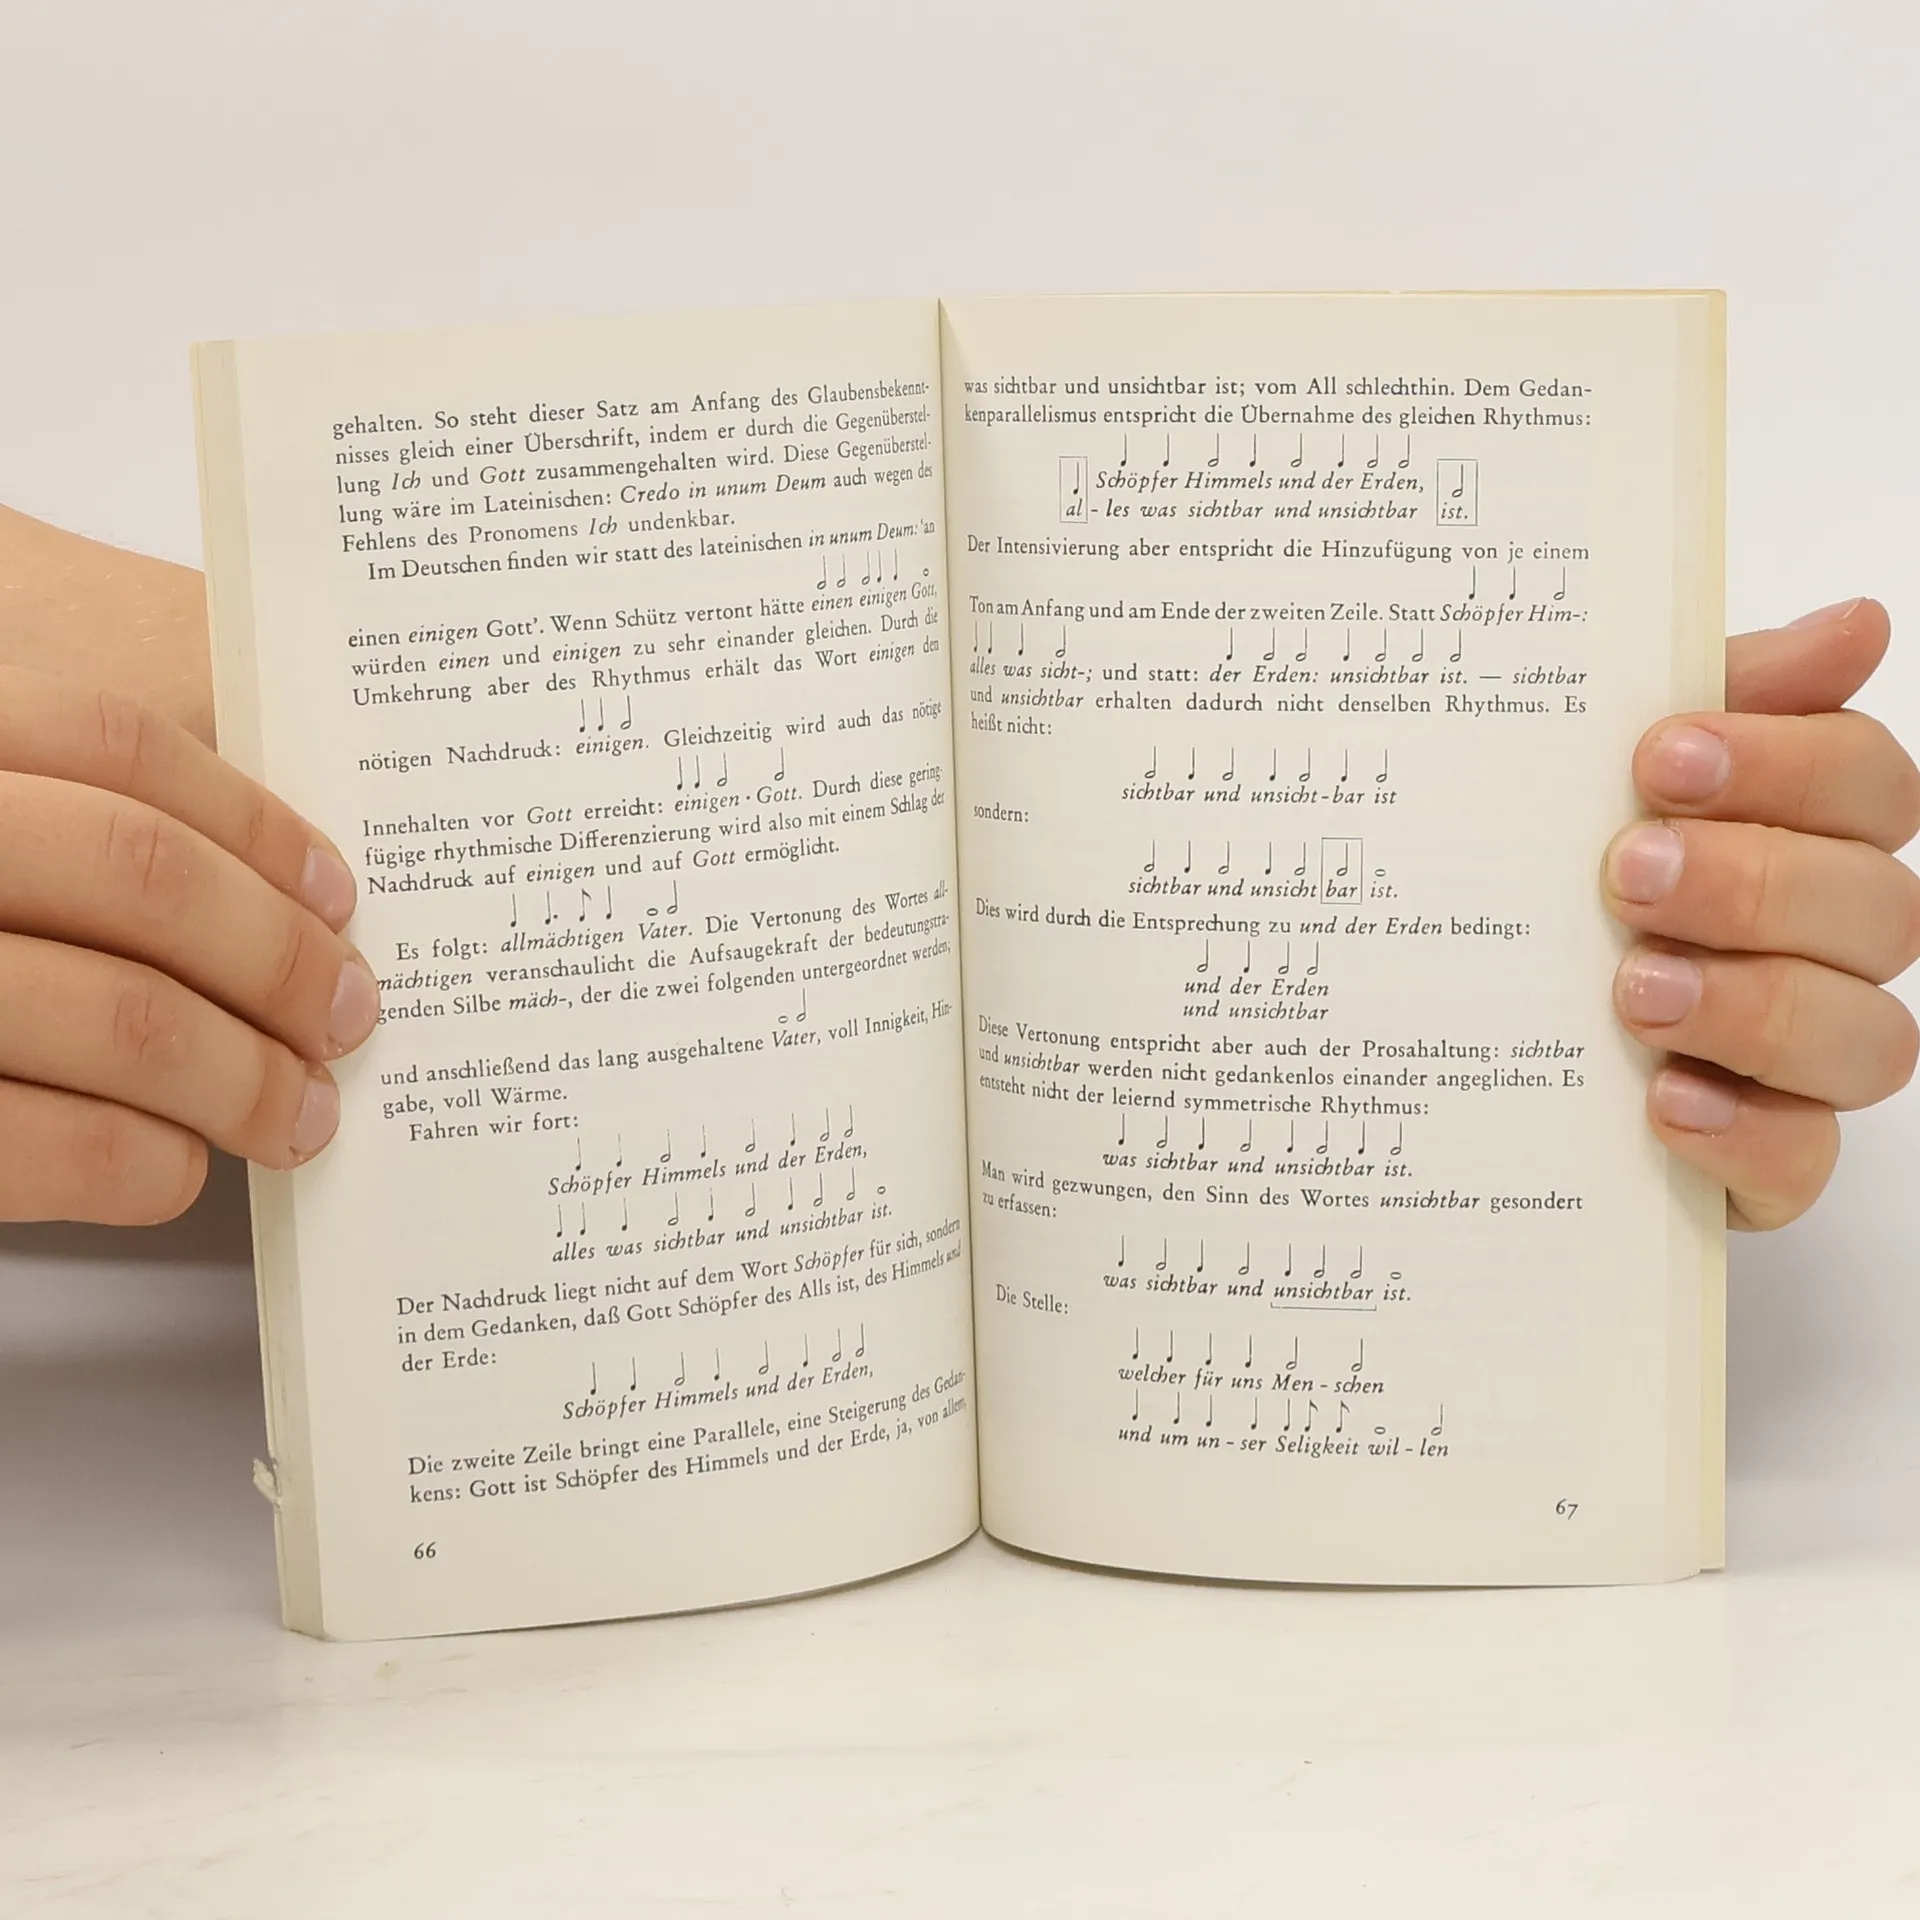 gehalten. So steht dieser Satz am Anfang des Glaubensbekennt-
nisses gleich einer Überschrift, indem er durch die Gegenüberstel-
lung Ich und Gott zusammengehalten wird. Diese Gegenüberstel-
lung wäre im Lateinischen: Credo in unum Deum auch wegen des
Fehlens des Pronomens Ich undenkbar.
Im Deutschen finden wir statt des lateinischen in unum Deum: 'an
einen einigen Gott'. Wenn Schütz vertont hätte einen einigen Gott,
würden einen und einigen zu sehr einander gleichen. Durch die
Umkehrung aber des Rhythmus erhält das Wort einigen den
nötigen Nachdruck: einigen. Gleichzeitig wird auch das nötige
Innehalten vor Gott erreicht: einigen · Gott. Durch diese gering-
fügige rhythmische Differenzierung wird also mit einem Schlag der
Nachdruck auf einigen und auf Gott ermöglicht.
Es folgt: allmächtigen Vater. Die Vertonung des Wortes all-
mächtigen veranschaulicht die Aufsaugekraft der bedeutungstra-
genden Silbe mäch-, der die zwei folgenden untergeordnet werden;
und anschließend das lang ausgehaltene Vater, voll Innigkeit, Hin-
gabe, voll Wärme.
Fahren wir fort:
Schöpfer Himmels und der Erden,
alles was sichtbar und unsichtbar ist.
Der Nachdruck liegt nicht auf dem Wort Schöpfer für sich, sondern
in dem Gedanken, daß Gott Schöpfer des Alls ist, des Himmels und
der Erde:
Schöpfer Himmels und der Erden,
Die zweite Zeile bringt eine Parallele, eine Steigerung des Gedan-
kens: Gott ist Schöpfer des Himmels und der Erde, ja, von allem,
66
was sichtbar und unsichtbar ist; vom All schlechthin. Dem Gedan-
kenparallelismus entspricht die Übernahme des gleichen Rhythmus:
Schöpfer Himmels und der Erden,
al - les was sichtbar und unsichtbar ist.
Der Intensivierung aber entspricht die Hinzufügung von je einem
Ton am Anfang und am Ende der zweiten Zeile. Statt Schöpfer Him-:
alles was sicht-; und statt: der Erden: unsichtbar ist. — sichtbar
und unsichtbar erhalten dadurch nicht denselben Rhythmus. Es
heißt nicht:
sichtbar und unsicht - bar ist
sondern:
sichtbar und unsicht bar ist.
Dies wird durch die Entsprechung zu und der Erden bedingt:
und der Erden
und unsichtbar
Diese Vertonung entspricht aber auch der Prosahaltung: sichtbar
und unsichtbar werden nicht gedankenlos einander angeglichen. Es
entsteht nicht der leiernd symmetrische Rhythmus:
was sichtbar und unsichtbar ist.
Man wird gezwungen, den Sinn des Wortes unsichtbar gesondert
zu erfassen:
was sichtbar und unsichtbar ist.
Die Stelle:
welcher für uns Men - schen
und um un - ser Seligkeit wil - len
67